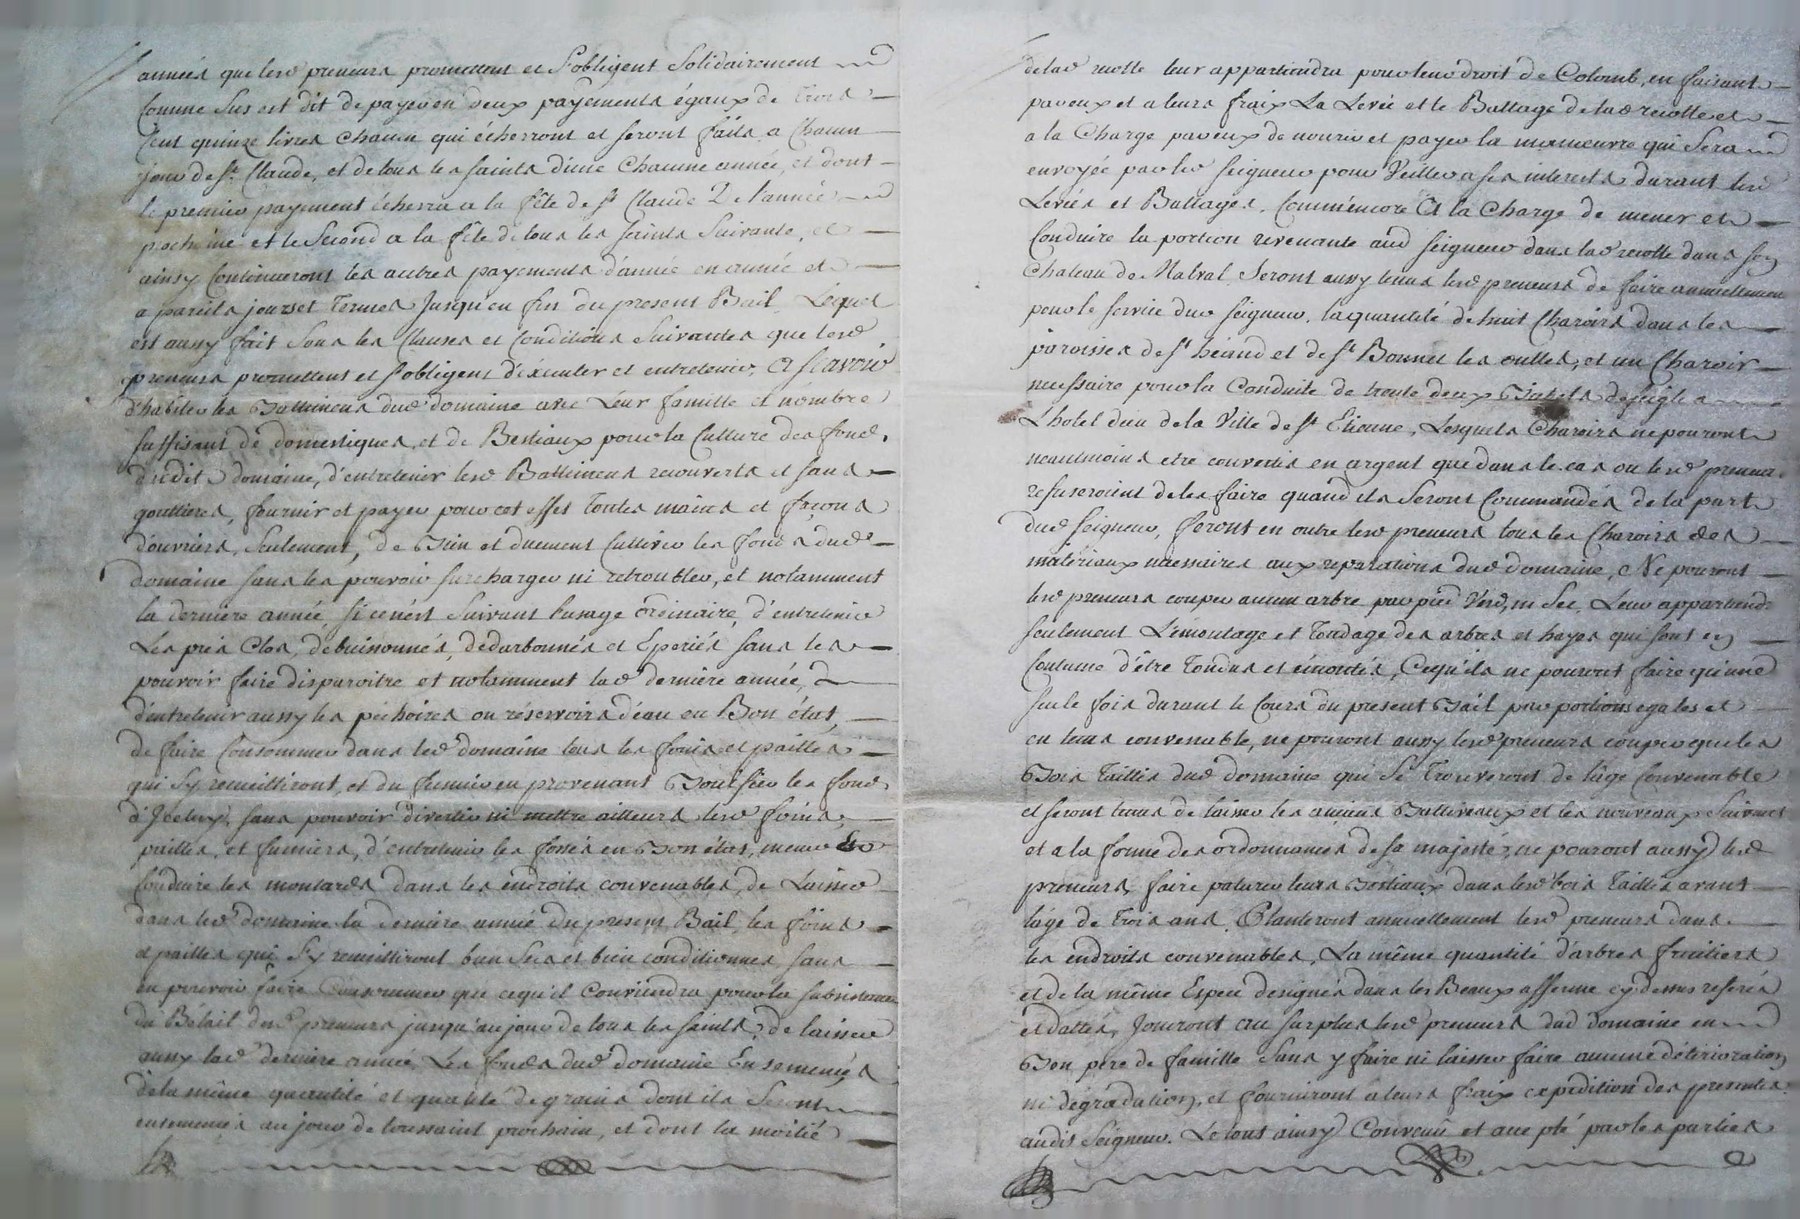 années que lesd preneurs promettent et s'obligent solidairement
comme sus est dit de payer en deux payements égaux de trois
cent quinze livres chacun qui écherront et seront faits a chacun
jour de St Claude, et de tous les saints d'une chacune année, et dont
le premier payement écherra a la fête de St Claude de l'année
prochaine et le second a la fête de tous les saints suivante, et
ainsy continueront les autres payements d'année en année et
a pareils jours et termes jusqu'en fin du present Bail, Lequel
est aussy fait sous les Clauses et Conditions suivantes que lesd
preneurs promettent et s'obligent d'éxécuter et entretenir, a scavoir
d'habiter les Battiments dud domaine avec leur famille et nombre
suffisant de domestiques, et de Bestiaux pour la Culture des fonds
dudit domaine, d'entretenir lesd Battiments recouverts et sans
gouttieres, fournir et payer pour cet effet toutes mains et façons
d'ouvriers, seulement, de Bien et duement cultiver les fonds dud
domaine sans les pouvoir surcharger ni retroubler, et notamment
la derniere année, si ce n'est suivant l'usage ordinaire, d'entretenir
Les prés Clos, debuissonnés, dedarbonnés et Eperiés sans les
pouvoir faire disparoitre et notamment lad derniere année,
d'entretenir aussy les péchoires ou réservoirs d'eau en Bon état,
de faire Consommer dans led domaine tous les foins et pailles
qui s'y recueilliront, et du fumier en provenant Bonifier les fonds
d'Iceluy, sans pouvoir divertir ni mettre ailleurs lesd foins,
pailles, et fumiers, d'entretenir les fossés en Bon état, mener Et
Conduire les moutardes dans les endroits convenables, de Laisser
dans led domaine la derniere année du present Bail, les foins
et pailles qui s'y recueilliront bien secs et bien conditionnés sans
en pouvoir faire Consommer que ce qu'il Conviendra pour la subsistance
du Bétail desd preneurs jusqu'au jour de tous les saints, de laisser
aussy lad derniere année Les fonds dud domaine Ensemencés
de la même quantité et qualité de grains dont ils seront
ensemencés au jour de toussaint prochain, et dont la moitié
de lad recolte leur appartiendra pour leur droit de Colomb, en faisant
par eux et a leurs fraix La Levée et le Battage de lad recolte et
a la Charge par eux de nourir et payer la manoeuvre qui sera
envoyée par led seigneur pour Veiller a ses interets durant lesd
Levées et Battages, Comm'encore A la Charge de mener et
Conduire la portion revenante aud seigneur dans lad recolte dans son
Chateau de Malval, Seront aussy tenus lesd preneurs de faire annuellement
pour le service dud seigneur, la quantité de huit Charoirs dans les
paroisses de St héand et de St Bonnet les oulles, et un Charoir
necessaire pour la Conduite de trente deux Bichets de seigle a
L'hotel dieu de la Ville de St Etienne, Lesquels Charoirs ne pouront
neantmoins etre convertis en argent que dans le cas ou lesd preneurs
refuseroient de les faire quand ils seront Commandés de la part
dud seigneur, feront en outre lesd preneurs tous les Charoirs des
matériaux necessaires aux reparations dud domaine, Ne pouront
lesd preneurs couper aucun arbre par pied Verd, ni Sec, Leur appartiendra
seulement L'émoutage et Tondage des arbres et hayes qui sont en
Coutume d'être Tondus et émoutés, Ce qu'ils ne pouront faire qu'une
seule fois durant le Cours du present Bail par portions egales et
en tems convenable, ne pouront aussy lesd preneurs couper que les
Bois Taillis dud domaine qui se Trouveront de l'age Convenable
et seront tenus de laisser les anciens Balliveaux et les nouveaux suivant
et a la forme des ordonnances de sa majesté, ne pouront aussy lesd
preneurs faire paturer leurs Bestiaux dans lesd bois Taillis avant
l'age de Trois ans, Planteront annuellement lesd preneurs dans
les endroits convenables, La même quantité d'arbres fruitiers
et de la même Espece designés dans les Beaux afferme cy dessus referés
et dattés, Jouiront au surplus lesd preneurs dud domaine en
Bon père de famille sans y faire ni laisser faire aucune détérioration
ni dégradation, et fourniront a leurs fraix expedition des presentes
audit seigneur. Le tout ainsy Convenu et accepté par les parties